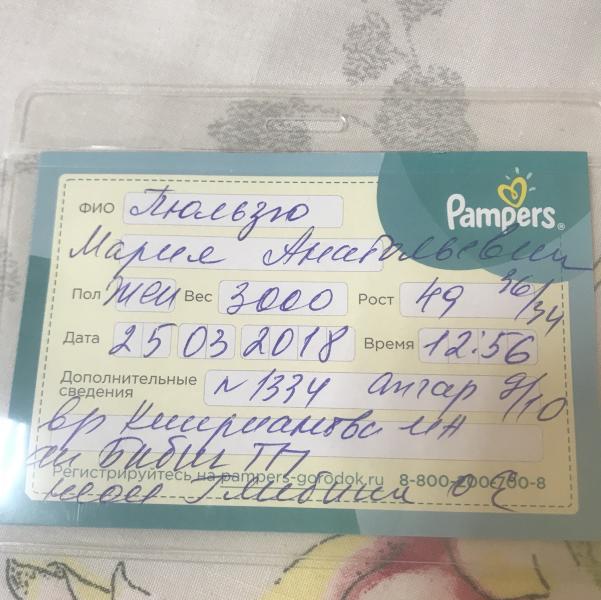 Pampers®
ФИО Пюльзю
Мария Анатольевна
Пол жен Вес 3000 Рост 49 36/34
Дата 25 03 2018 Время 12:56
Дополнительные сведения N 1334 апгар 9/10
вр Киприанова ИН
ТП
Регистрируйтесь на pampers-gorodok.ru 8-800-200-700-8